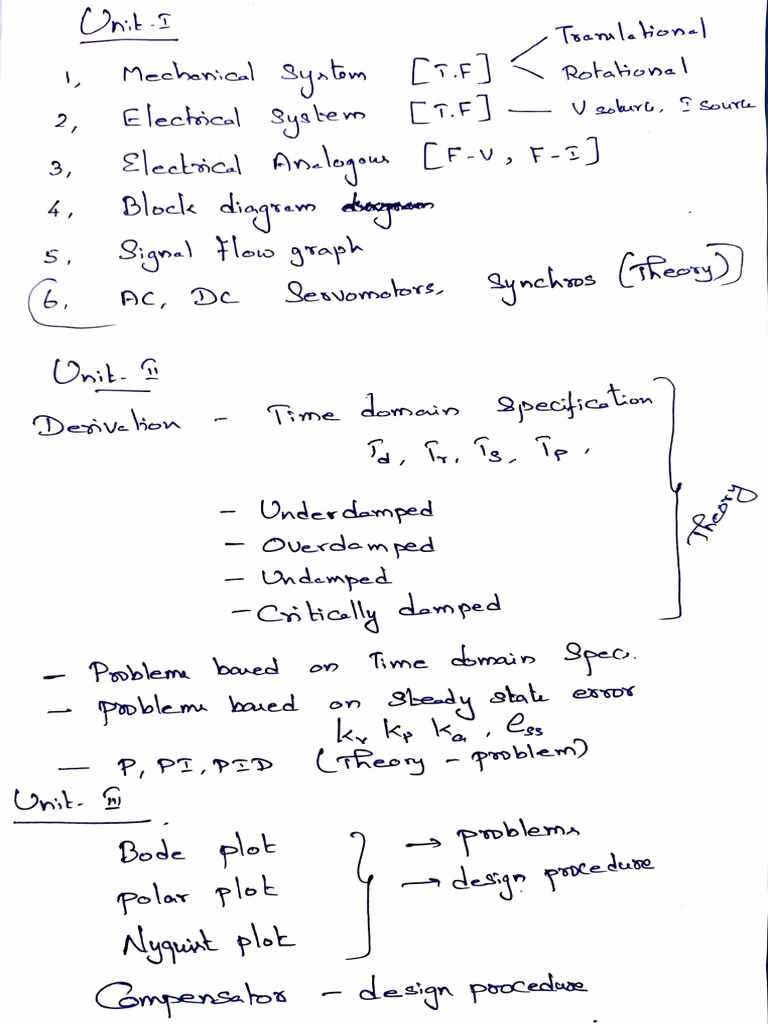 Unit-I
1, Mechanical System [T.F] Translational
Rotational
2, Electrical System [T.F] — V soture, I source
3, Electrical Analogous [F-V, F-I]
4, Block diagram
5, Signal flow graph
6, AC, DC Servomotors, Synchros (Theory)
Unit-II
Derivation - Time domain Specification
Td, Tr, Ts, Tp,
- Underdamped
- Overdamped
- Undamped
- Critically damped
Theory
- Problems based on Time domain Spec.
- problems based on steady state error
kv kp ka, ess
- P, PI, PID (Theory - problem)
Unit-III
Bode plot → problems
polar plot → design procedure
Nyquist plot
Compensator - design procedure